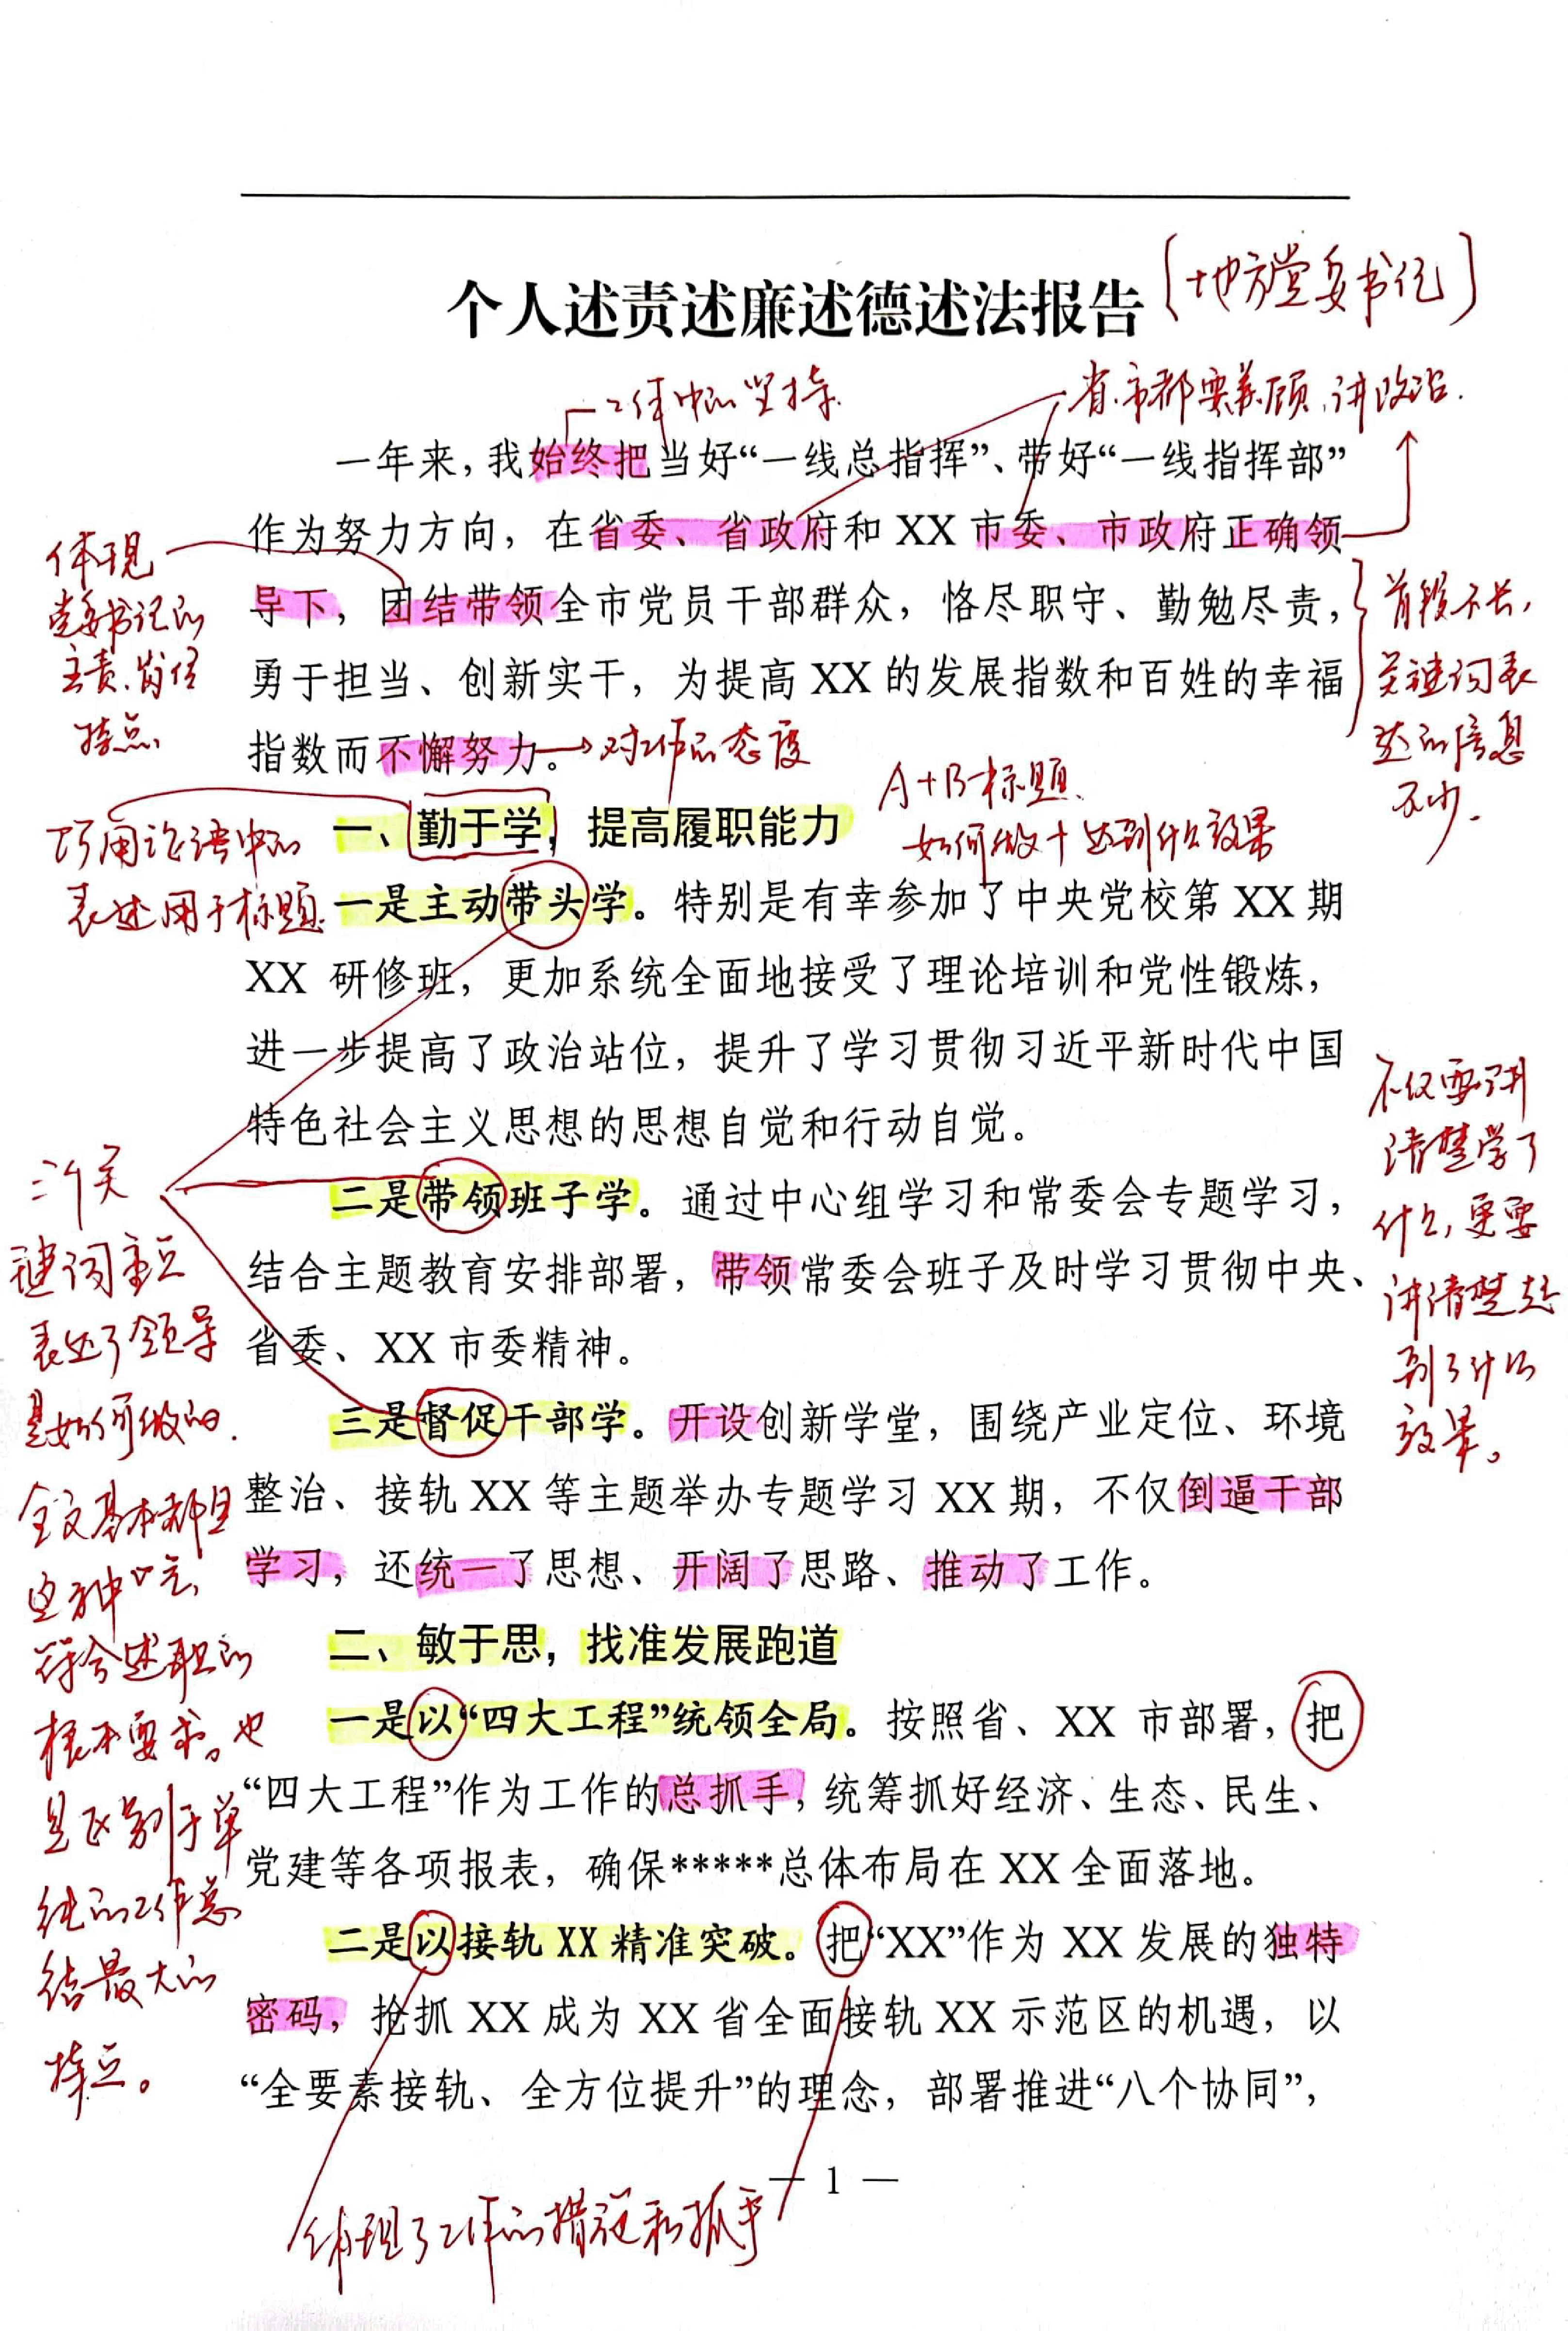 个人述责述廉述德述法报告
(地方党委书记)
工作中的坚持.
省.市都要兼顾,讲政治.
一年来，我始终把当好“一线总指挥”、带好“一线指挥部”
作为努力方向，在省委、省政府和 XX 市委、市政府正确领
导下，团结带领全市党员干部群众，恪尽职守、勤勉尽责，
勇于担当、创新实干，为提高 XX 的发展指数和百姓的幸福
指数而不懈努力。
对工作的态度
体现
党委书记的
主责、岗位
特点.
首段不长,
关键词表
达的信息
不少.
A+B标题.
如何做+达到什么效果
巧用论语中的
表述用于标题.
一、勤于学，提高履职能力
一是主动带头学。特别是有幸参加了中央党校第 XX 期
XX 研修班，更加系统全面地接受了理论培训和党性锻炼，
进一步提高了政治站位，提升了学习贯彻习近平新时代中国
特色社会主义思想的思想自觉和行动自觉。
二是带领班子学。通过中心组学习和常委会专题学习，
结合主题教育安排部署，带领常委会班子及时学习贯彻中央、
省委、XX 市委精神。
三是督促干部学。开设创新学堂，围绕产业定位、环境
整治、接轨 XX 等主题举办专题学习 XX 期，不仅倒逼干部
学习，还统一了思想、开阔了思路、推动了工作。
不仅要讲
清楚学了
什么,更要
讲清楚起
到了什么
效果。
三个关
键词重点
表达了领导
是如何做的.
全文基本都是
这种
符合述职的
根本要求。也
是区别于单
纯的工作总
结最大的
特点。
二、敏于思，找准发展跑道
一是以“四大工程”统领全局。按照省、XX 市部署，把
“四大工程”作为工作的总抓手，统筹抓好经济、生态、民生、
党建等各项报表，确保*****总体布局在 XX 全面落地。
二是以接轨 XX 精准突破。把“XX”作为 XX 发展的独特
密码，抢抓 XX 成为 XX 省全面接轨 XX 示范区的机遇，以
“全要素接轨、全方位提升”的理念，部署推进“八个协同”，
— 1 —
体现了工作的措施和抓手